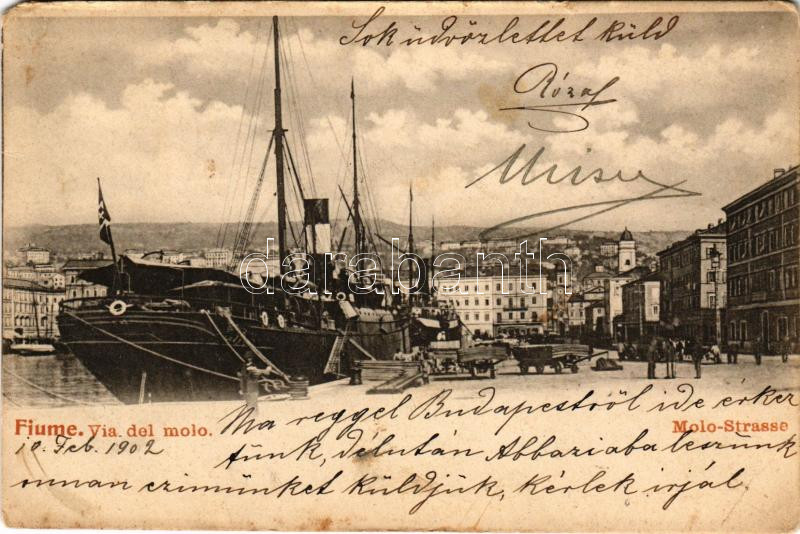 Sok üdvözlettet küld
Rózsa
Misu
darabanth
Fiume. Via del molo.
Molo-Strasse
10. Feb. 1902
Ma reggel Budapestről ide érkez
tünk, délután Abbaziaba leszünk
onnan czimünket küldjük, kérlek irjál